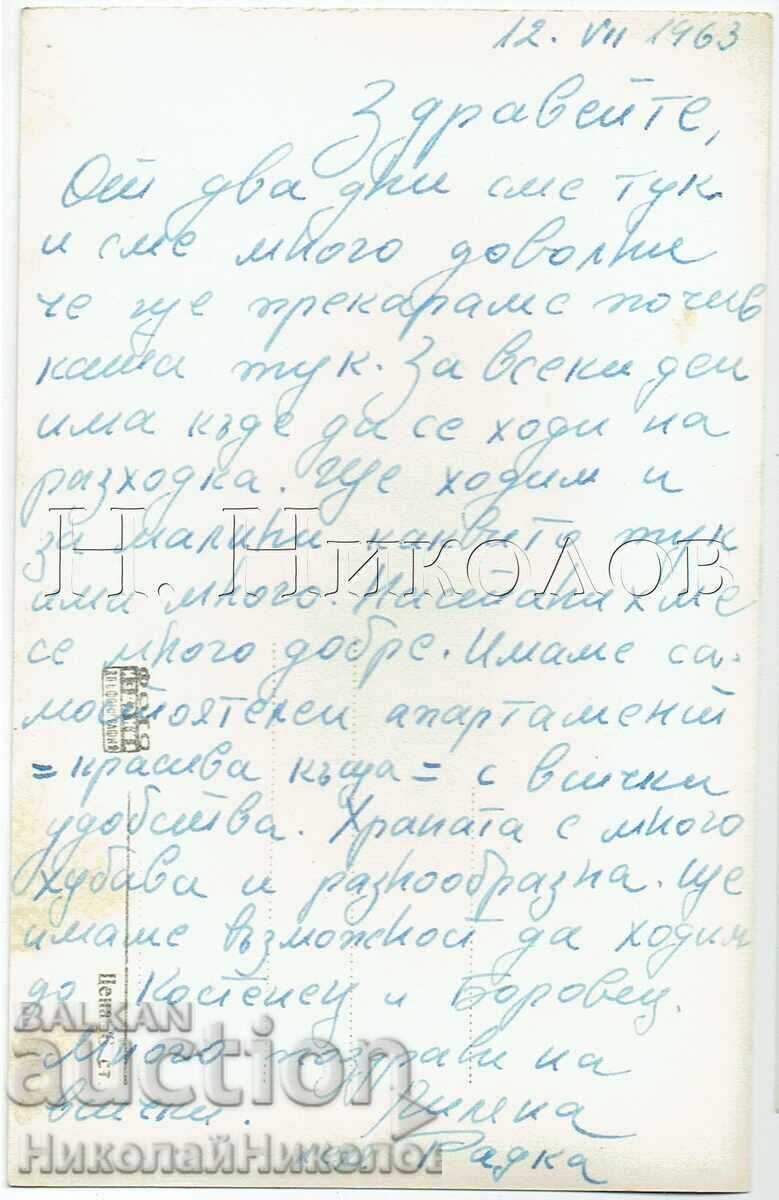 12. VII 1963
Здравейте,
От два дни сме тук
и сме много доволни
че ще прекараме почив
ката тук. За всеки ден
има къде да се ходи на
разходка. Ще ходим и
за малини каквито тук
има много. Настанихме
се много добре. Имаме са-
мостоятелен апартамент
= красива къща = с всички
удобства. Храната е много
хубава и разнообразна. Ще
имаме възможност да ходим
до Костенец и Боровец.
Много поздрави на
всички.
Радка
Цена ст.
Н. Николов
BALKAN
auction
НиколайНиколов